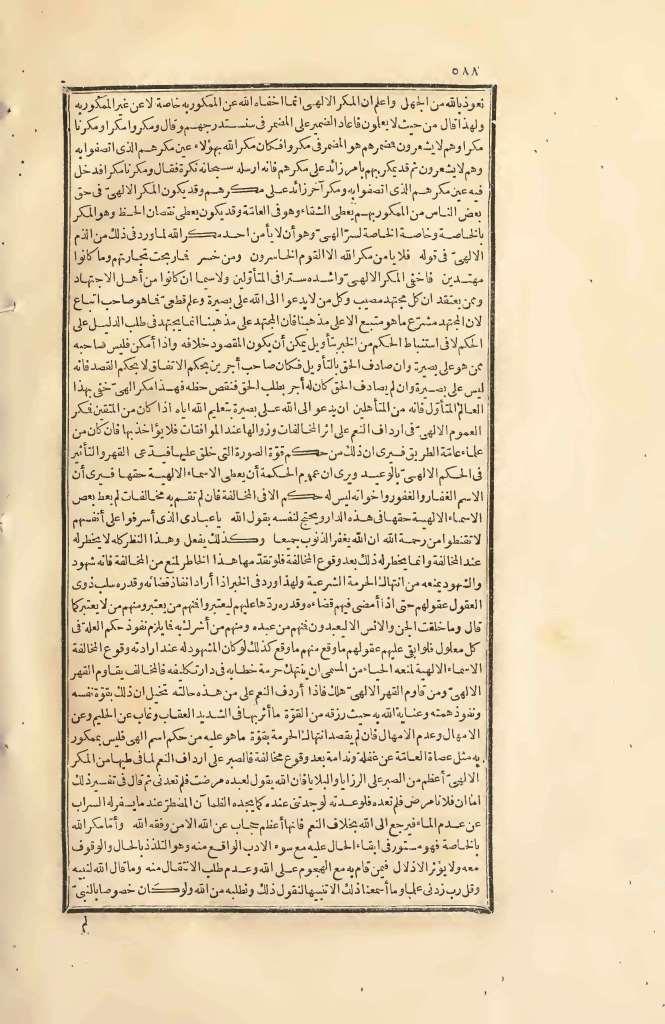 ٥٨٨
نعوذ بالله من الجهل واعلم ان المكر الالهى انما اخفاه الله عن الممكور به خاصة لا عن غير الممكور به
ولهذا قال من حيث لا يعلمون فاعاد الضمير على المضمر فى سنستدرجهم وقال ومكروا مكرا ومكرنا
مكرا وهم لا يشعرون فضميرهم هو المضمر فى مكروا فكان مكر الله بهؤلاء عين مكرهم الذى اتصفوا به
وهم لا يشعرون ثم قد يمكر بهم بأمر زائد على مكرهم فانه ارسله سبحانه نكرة فقال ومكرنا مكرا فدخل
فيه عين مكرهم الذى اتصفوا به ومكر آخر زائد على مكرهم وقد يكون المكر الالهىّ فى حق
بعض الناس من الممكور بهم يعطى الشقاء وهو فى العامّة وقد يكون يعطى نقصان الحظ وهو المكر
بالخاصة وخاصة الخاصة لسرّ الهىّ وهو أن لا يأمن احد مكر الله لما ورد فى ذلك من الذم
الالهىّ فى قوله فلا يأمن مكر الله الا القوم الخاسرون ومن خسر فما ربحت تجارتهم وما كانوا
مهتدين فاخفى المكر الالهىّ واشده سترا فى المتأوّلين ولا سيما ان كانوا من أهل الاجتهاد
وممن يعتقد ان كل مجتهد مصيب وكل من لا يدعوا الى الله على بصيرة وعلم قطعىّ فما هو صاحب اتباع
لان المجتهد مشرّع ما هو متبع الا على مذهبنا فان المجتهد على مذهبنا انما يجتهد فى طلب الدليل على
الحكم لا فى استنباط الحكم من الخبر بتأويل يمكن أن يكون المقصود خلافه واذا أمكن فليس صاحبه
ممن هو على بصيرة وان صادف الحق بالتأويل فكان صاحب أجرين بحكم الاتفاق لا بحكم القصد فانه
ليس على بصيرة وان لم يصادف الحق كان له أجر بطلب الحق فنقص حظه فهذا مكر الهىّ خفى بهذا
العالم المتأوّل فانه من المتأهلين ان يدعو الى الله على بصيرة بتعليم الله اياه اذا كان من المتقين فمكر
العموم الالهىّ فى ارداف النعم على اثر المخالفات وزوالها عند الموافقات فلا يؤاخذ بها فان كان من
علماء عامّة الطريق فيرى ان ذلك من حكم قوّة الصورة التى خلق عليها فيدّعى القهر والتأثير
فى الحكم الالهىّ بالوعيد ويرى ان عموم الحكمة أن يعطى الاسماء الالهية حقها فيرى أنّ
الاسم الغفار والغفور واخوانه ليس له حكم الا فى المخالفة فان لم تقم به مخالفات لم يعط بعض
الاسماء الالهية حقها فى هذه الدار ويحتج لنفسه بقول الله يا عبادى الذى أسرفوا على أنفسهم
لا تقنطوا من رحمة الله ان الله يغفر الذنوب جميعا وكذلك يفعل وهذا النظر كله لا يخطر له
عند المخالفة وانما يخطر له ذلك بعد وقوع المخالفة فلو تقدّمها هذا الخاطر لمنع من المخالفة فانه شهود
والشهود يمنعه من انتهاك الحرمة الشرعية ولهذا ورد فى الخبر اذا أراد انفاذ قضائه وقدره سلب ذوى
العقول عقولهم حتى اذا أمضى فيهم قضاءه وقدره ردّها عليهم ليعتبروا فمنهم من يعتبر ومنهم من لا يعتبر كما
قال وما خلقت الجن والانس الا ليعبدون فمنهم من عبده ومنهم من أشرك به فما يلزم نفوذ حكم العلة فى
كل معلول فلو ابقى عليهم عقولهم ما وقع منهم ما وقع كذلك لو كان المشهود له عند ارادته وقوع المخالفة
الاسماء الالهية لمنعه الحياء من المسمى ان ينتهك حرمة خطابه فى دار تكليفه فالمخالف يقاوم القهر
الالهىّ ومن قاوم القهر الالهىّ هلك فاذا أردف النعم على من هذه حالته تخيل ان ذلك بقوّة نفسه
ونفوذ همته وعناية الله به حيث رزقه من القوّة ما أثر بها فى الشديد العقاب وغاب عن الحليم وعن
الامهال وعدم الاهمال فان لم يقصد انتهاك الحرمة بقوّة ما هو عليه من حكم اسم الهى فليس بممكور
به مثل عصاة العامّة عن غفلة وندامة بعد وقوع مخالفة فالصبر على ارداف النعم لما فى طيها من المكر
الالهىّ أعظم من الصبر على الرزايا والبلايا فان الله يقول لعبده مرضت فلم تعدنى ثم قال فى تفسير ذلك
اما ان فلانا مرض فلم تعده فلو عدته لوجدتنى عنده كما يجده الظمآن المضطرّ عند ما يسفر له السراب
عن عدم الماء فيرجع الى الله بخلاف النعم فانها أعظم حجاب عن الله الا من وفقه الله وأمّا مكر الله
بالخاصة فهو مستور فى ابقاء الحال عليه مع سوء الادب الواقع منه وهو التلذذ بالحال والوقوف
معه ولا يؤثر الاذلال فيمن قام به مع الهجوم على الله وعدم طلب الانتقال منه وما قال الله لنبيه
وقل رب زدنى علما وما أسمعنا ذلك الا تنبيها لنقول ذلك ونطلبه من الله ولو كان خصوصا بالنبىّ
لم